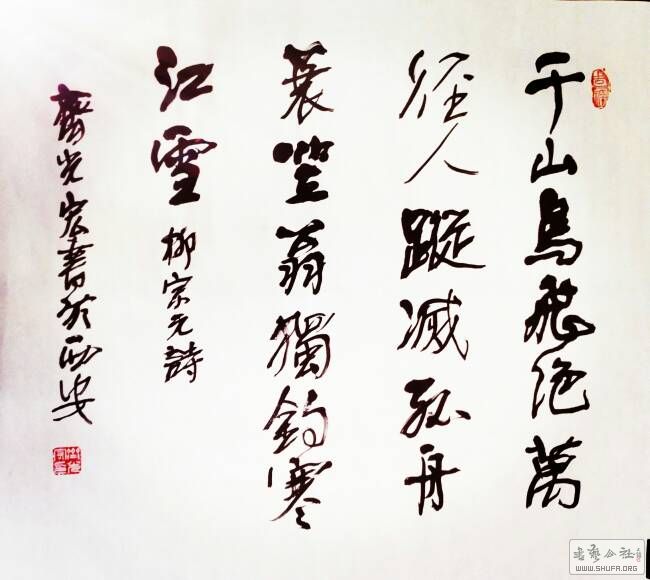 千山鳥飛絕萬
径人蹤滅孤舟
蓑笠翁獨釣寒
江雪 柳宗元詩
光宏書於西安
書藝公社
WWW.SHUFA.ORG